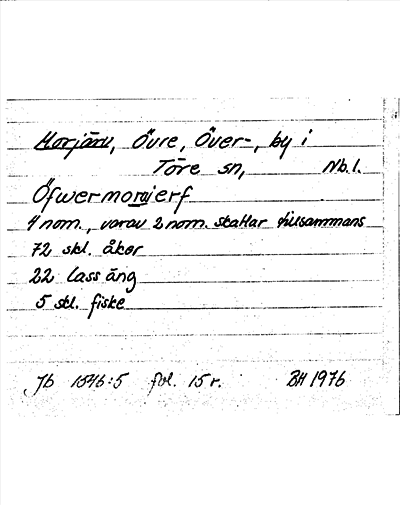 Morjärv, Övre, Över-, by i
Töre sn, Nb.l.
Öfwermorjerf
4 nom., varav 2 nom. skattar tillsammans
72 skl. åker
22 lass äng
5 skl. fiske
Jb 1546:5 fol. 15 r. BH 1976